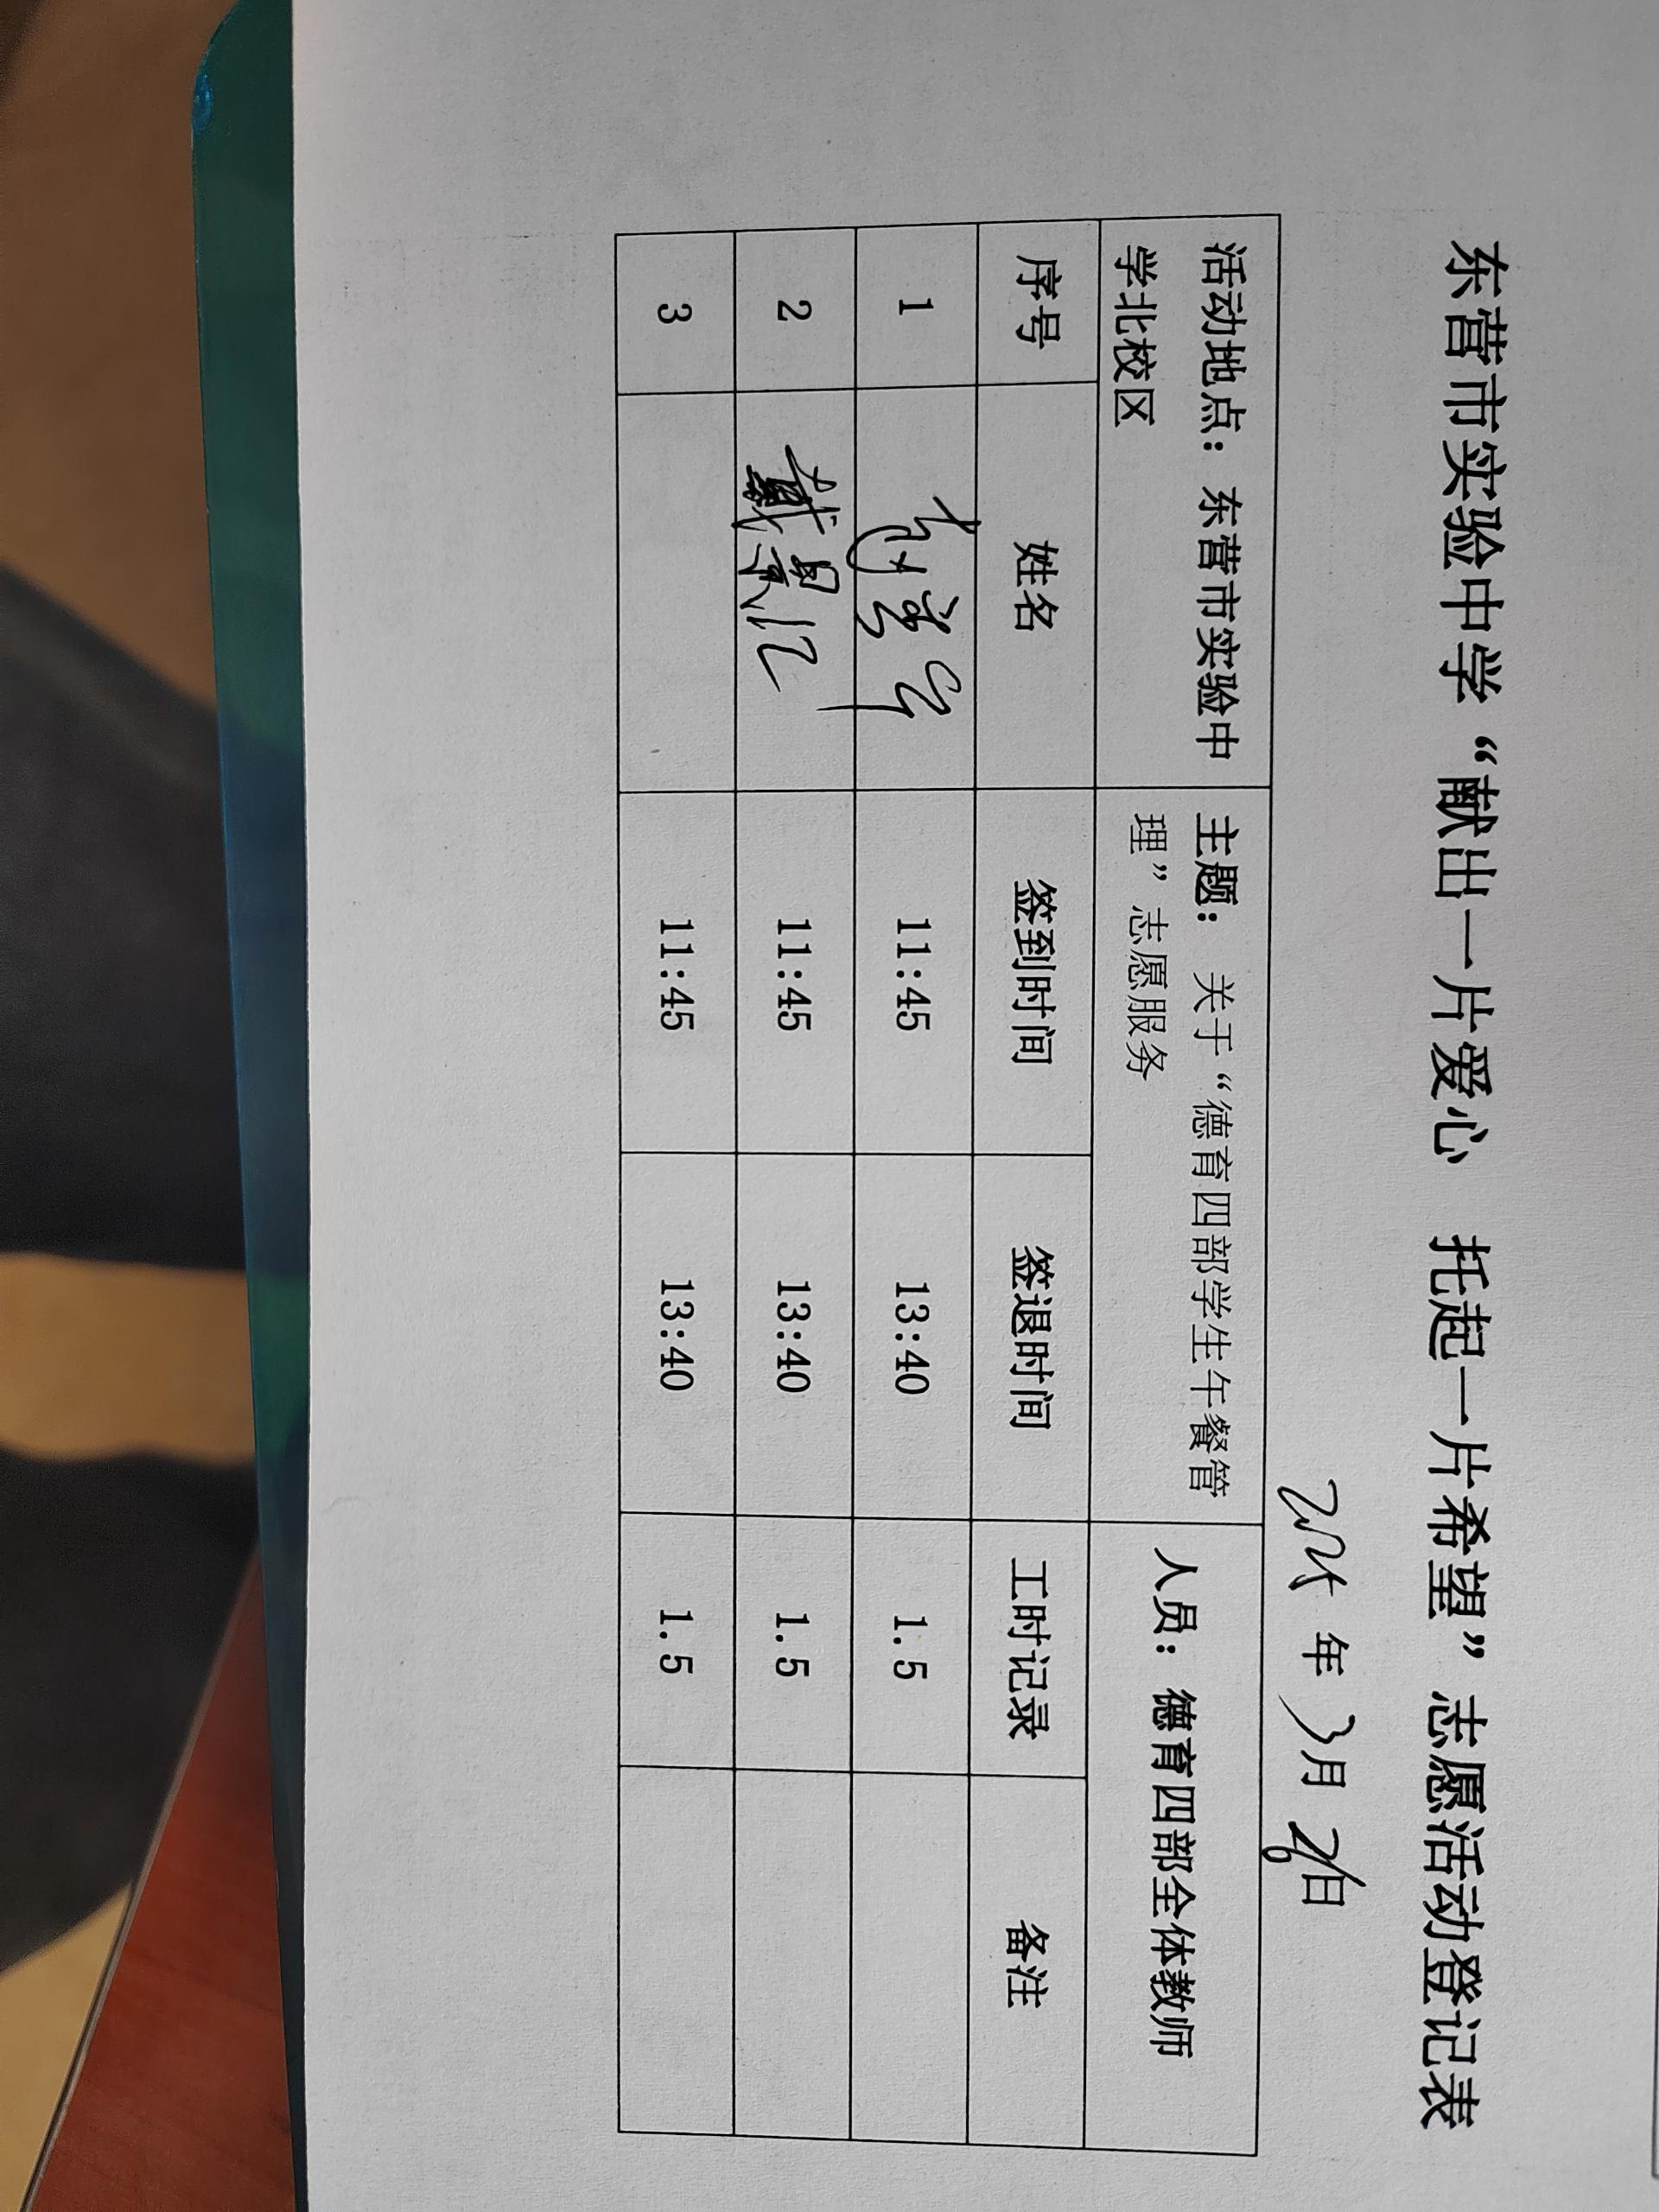 东营市实验中学“献出一片爱心 托起一片希望”志愿活动登记表
年3月26日
活动地点：东营市实验中
学北校区
主题：关于“德育四部学生午餐管
理”志愿服务
人员：德育四部全体教师
序号 姓名 签到时间 签退时间 工时记录 备注
1 11:45 13:40 1.5
2 戴景汇 11:45 13:40 1.5
3 11:45 13:40 1.5